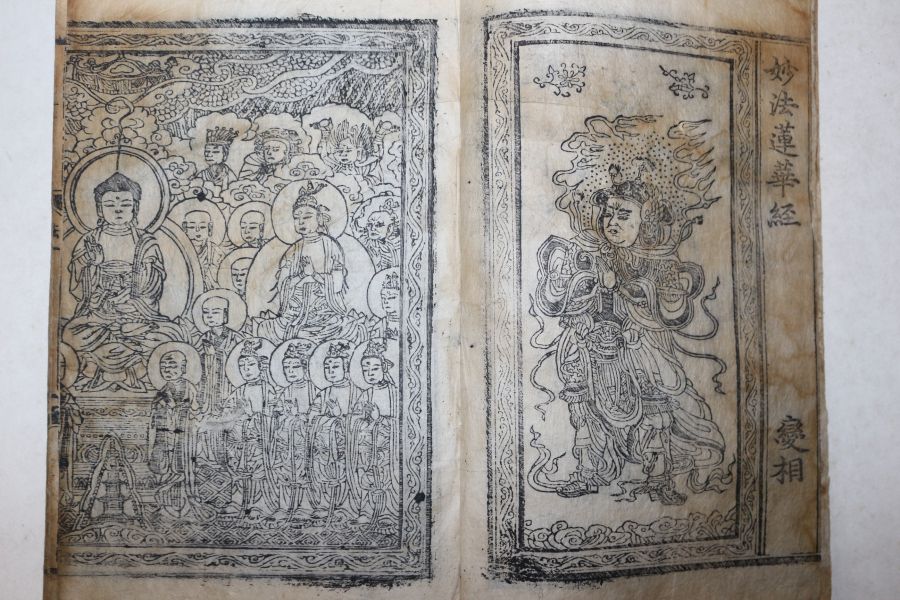 妙法蓮華経
變相